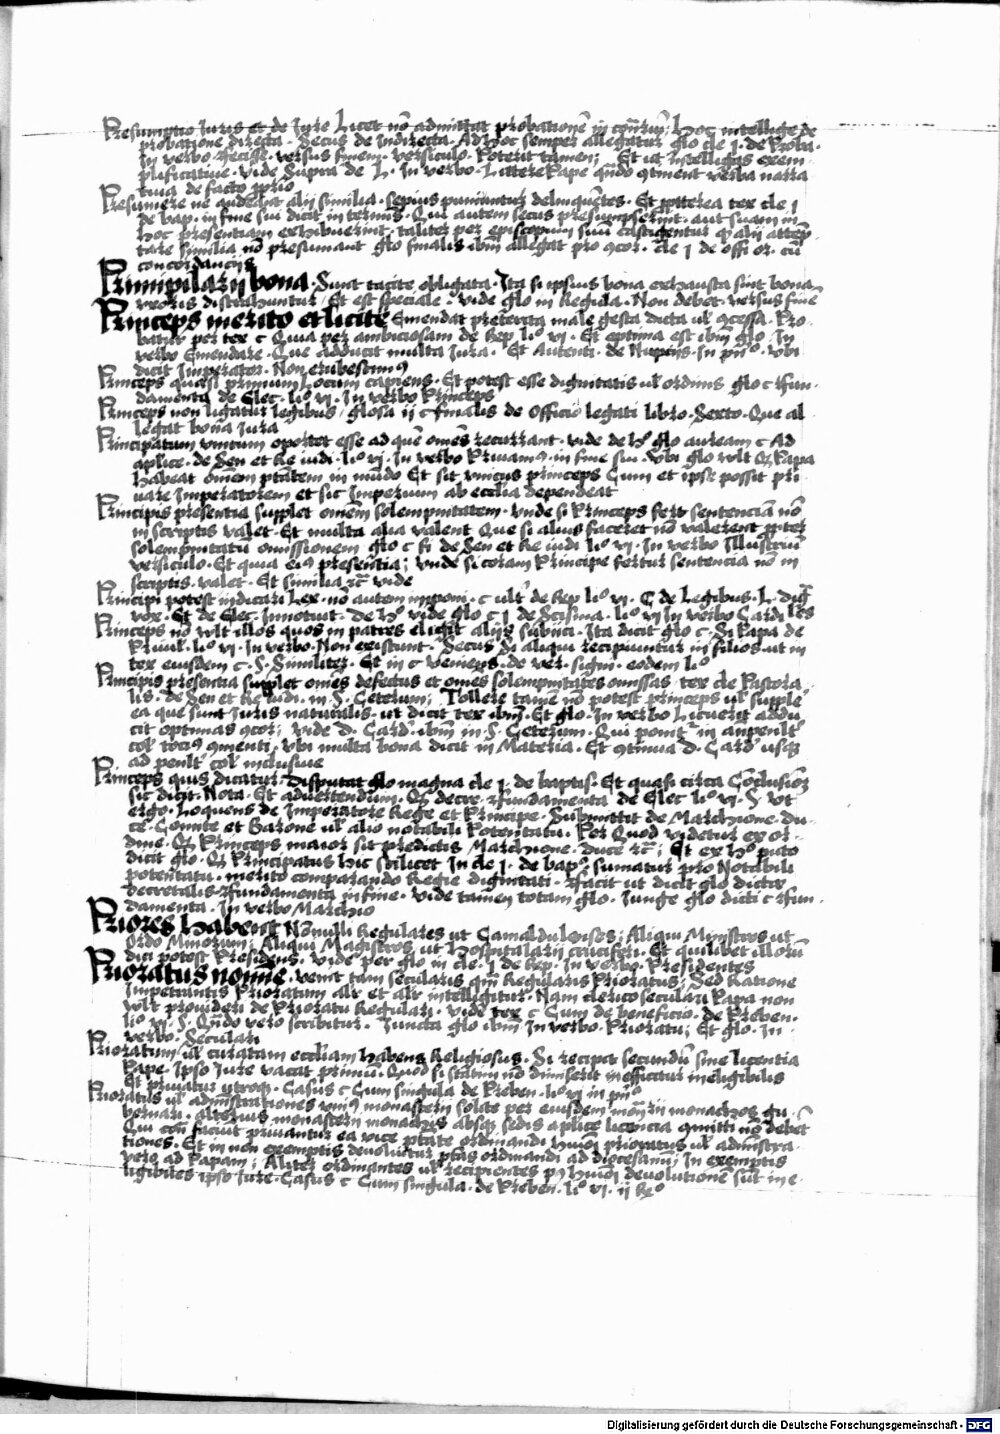 Presumptio Juris et de Jure Licet nō admittat probationē in cōtrariū; Hoc intellige de
probatione directa. Secus de Indirecta. Ad Hoc semper allegatur glo cle j. de Proba.
In verbo fecisse. versus finem. versiculo. Poterit tamen; Et ita Intelligas exem-
plificative. vide Supra de L. In verbo. Littere Pape qn̄do 9tinent verba narra
tiva de facto pprio
Presumere ne audeat alij similia. sepius puniuntur delinquētes. Et ppterea tex cle j
de bap. in fine sui dicit in termis. Qui autem secus presumpserint. aut suam in
hoc presentiam exhibuerint. taliter per episcopum suū castigentur q alij attēp
tare similia nō presumant glo finalis ibm̄ allegat pro 9cor. cle j de offi or. cū
concordancijs
Primipilarij bona. Sunt tacite obligata. Ita si ipsius bona exhausta sint bona
uxoris distrahuntur / Et est speciale. vide glo in Regula. Non debet. versus fine
Princeps merito et licite Emendat preterita male gesta dicta ul' 9cessa. Pro-
batur per tex c Quia per ambiciosam de Rep li° vi. Et optima est ibm̄ glo. In
verbo Emendare. Que adducit multa Jura. Et Autenti. de Nupcijs. In pn̄°. vbi
dicit Imperator. Non erubescim9
Princeps quasi primum Locum capiens. Et potest esse dignitatis ul' ordinis glo c fun-
damenta de Elec. li° vi. In verbo Princeps
Princeps non ligatur legibus / glosa ij c finalis de Officio legati libro. Sexto. Que al
legat bona Jura
Principatum vnicum oportet esse ad quē om̄es recurrant. vide de h° glo auream c Ad
aplice. de Sen et Re iudi. li° vi. In verbo Privam9. in fine sui. vbi glo wlt q Papa
habeat om̄em ptātem in mūdo Et sit vnicus princeps Cum et ipse possit pri
uare Imperatorem et sic Imperium ab ecclia dependeat
Principis presentia supplet om̄em solempnitatem. vnde si Princeps fert sentenciā nō
in scriptis valet. Et multa alia valent Que si alius faceret nō valerent ppter
solempnitatū omissionem glo c fi de Sen et Re iudi li° vi. In verbo Illustriū
versiculo. Et quia ei9 presētia; vnde si coram Principe fertur sentencia nō in
scriptis. valet. Et similia rc̄ vide
Principi potest indicari Lex. nō autem imponi. c ult' de Rep li° vi. C de Legibus. L. dig
vox. Et de Elec. Innotuit. De h° vide glo c j de Scisma. li° vi In verbo Cardi les
Princeps nō wlt illos quos in patres eligit alijs subiici. Ita dicit glo c. Si Papa de
Privil. li° vi. In verbo. Non existunt. Secus Si aliqui recipiuntur in filios. ut in
tex eiusdem c. §. Similiter. Et in c veniens. de ver. signi. eodem li°
Principis presentia supplet om̄es defectus et om̄es solempnitates omissas. tex cle Pastora
lis. de Sen et Re iudi. in §. Ceterum; Tollere tamē nō potest princeps ul' supple
ea que sunt Juris naturalis. ut dicit tex ibm̄. Et glo. In verbo Licuerit addu
cit optimas 9cor; vide d. Card. ibm̄ in §. Ceterum. Qui ponit in anpenult'
col' toci9 9menti. vbi multa bona dicit in Materia. Et 9tinua d. Card' usq
ad penlt' col' inclusive
Princeps quis dicatur. Disputat glo magna cle j. de baptis. Et quasi circa Cōclusiōē
sic dicit. Nota. Et advertendum. q decre. fundamenta de Elec li° vi. §. vt
ergo. Loquens de Imperatore Rege et Principe. Submittit de Marchione. Du-
ce. Comite et Barone ul' alio notabili Potentatu. Per Quod videtur ex or-
dine. q Princeps maior sit predictis Marchione. duce rc̄; Et ex h° puto
dicit glo. q Principatus hic scilicet In cle j. de bap°. sumatur pro Notabili
potentatu. merito comparando Regie dignitati. facit ut dicit glo dicta
decretalis. fundamenta in fine. vide tamen totam glo. Junge glo dicti c fun-
damenta. In verbo Marchio
Priores habent Nōnulli Regulares ut Camaldulenses; Aliqui Ministros ut
Ordo Minorum; Aliqui Magistros ut Hospitalarij cruciferi. Et quilibet illorū
dici potest Presidens. vide per glo in cle. j de Rep. In verbo. Presidentes
Prioratus noīne. venit tam secularis qm̄ Regularis Prioratus; Sed Ratione
Impetrantis Prioratum alr et alr intelligitur. Nam clerico seculari Papa non
wlt provideri de Prioratu Regulari. vide tex c Cum de beneficio. de Preben.
li° vi. §. Qn̄do vero scribitur. Juncta glo ibm̄ In verbo. Prioratu; Et glo. In.
verbo. Seculari
Prioratum / ul' curatam eccliam habens Religiosus. Si recipit secundū sine licentia
Pape. Ipso Jure vacat primū. Quod si statim nō dimiserit inefficitur ineligibilis
Et privatur utroq. Casus c Cum singula de Preben. li° vi in pn̄°
Prioratus ul' adm̄strationes vni9 monasterij solite per eiusdem mon̄rij monachos gu-
bernari. alterius monasterij monachis absq sedis aplice licencia 9mitti nō debēt
Qui cont̄ faciūt privantur ea vice ptāte ordinandi hm̄oi prioratus ul' adm̄stra-
tiones. Et in non exemptis devolvitur ptās ordinandi ad diocesanū; In exemptis
vero ad Papam; Aliter ordinantes ul' recipientes p9 hm̄oi devolutionē sūt ine-
ligibiles ipso Jure. Casus c Cum singula. de Preben. li° vi. ij Re°
Digitalisierung gefördert durch die Deutsche Forschungsgemeinschaft - DFG